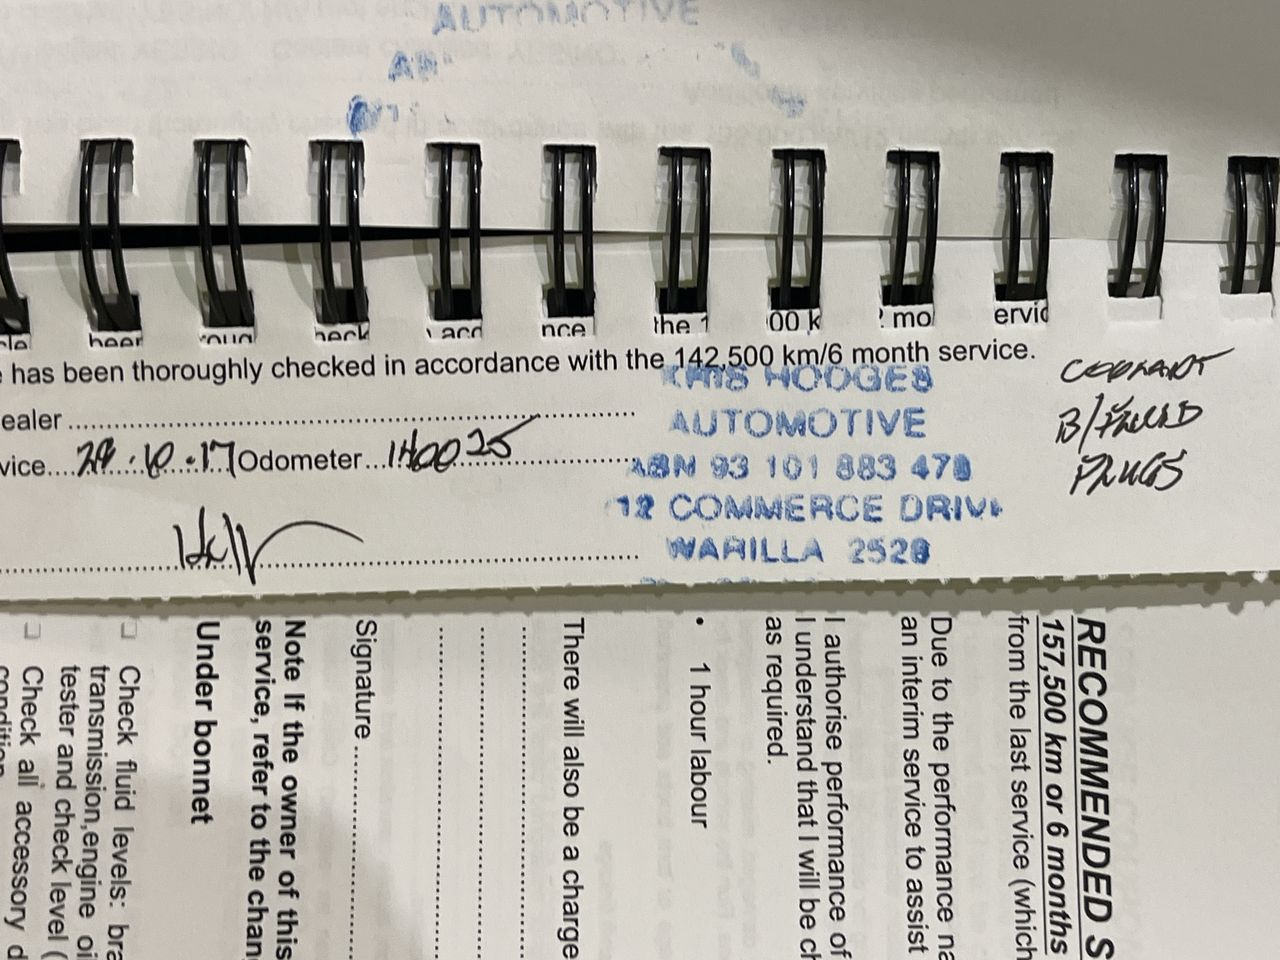 AUTOMOTIVE
has been thoroughly checked in accordance with the 142,500 km/6 month service.
ealer
vice 10.17 Odometer 140025
HODGES
AUTOMOTIVE
ABN 93 101 883 478
12 COMMERCE DRIV
WARILLA 2528
COOLANT
B/FLUID
PLUGS
RECOMMENDED S
157,500 km or 6 months
from the last service (which
Due to the performance na
an interim service to assist
I authorise performance of
I understand that I will be ch
as required.
• 1 hour labour
There will also be a charge
Signature
Note If the owner of this
service, refer to the chan
Under bonnet
Check fluid levels: bra
transmission,engine oi
tester and check level (
Check all accessory d
condition